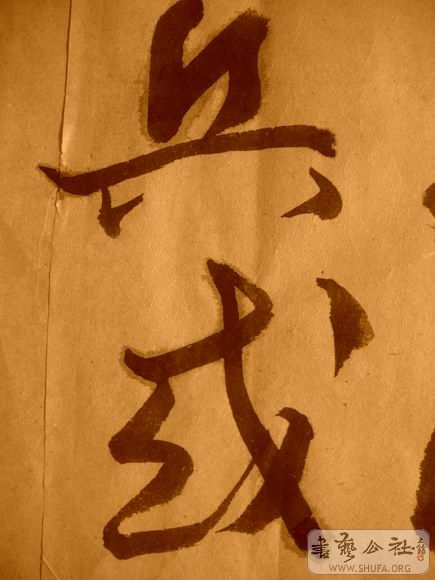 兵
或
書藝公社
WWW.SHUFA.ORG